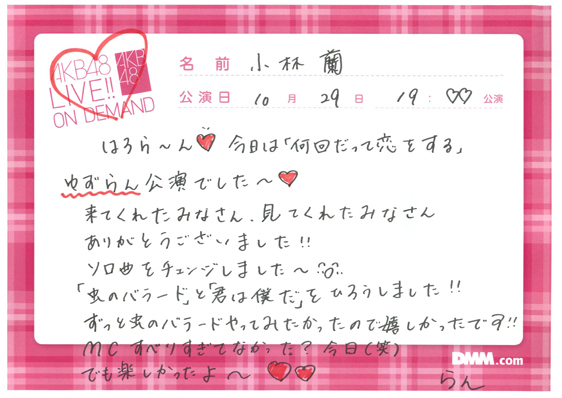 AKB48
LIVE!!
ON DEMAND
AKB
48
名前 小林 蘭
公演日 10月 29日 19:♡♡ 公演
はろら〜ん♥ 今日は「何回だって恋をする」
ゆずらん公演でした〜♥
来てくれたみなさん、見てくれたみなさん
ありがとうございました!!
ソロ曲をチェンジしました〜
「虫のバラード」と「君は僕だ」をひろうしました!!
ずっと虫のバラードやってみたかったので嬉しかったです!!
MC すべりすぎてなかった? 今日(笑)
でも楽しかったよ〜 ♥♥
らん
DMM.com